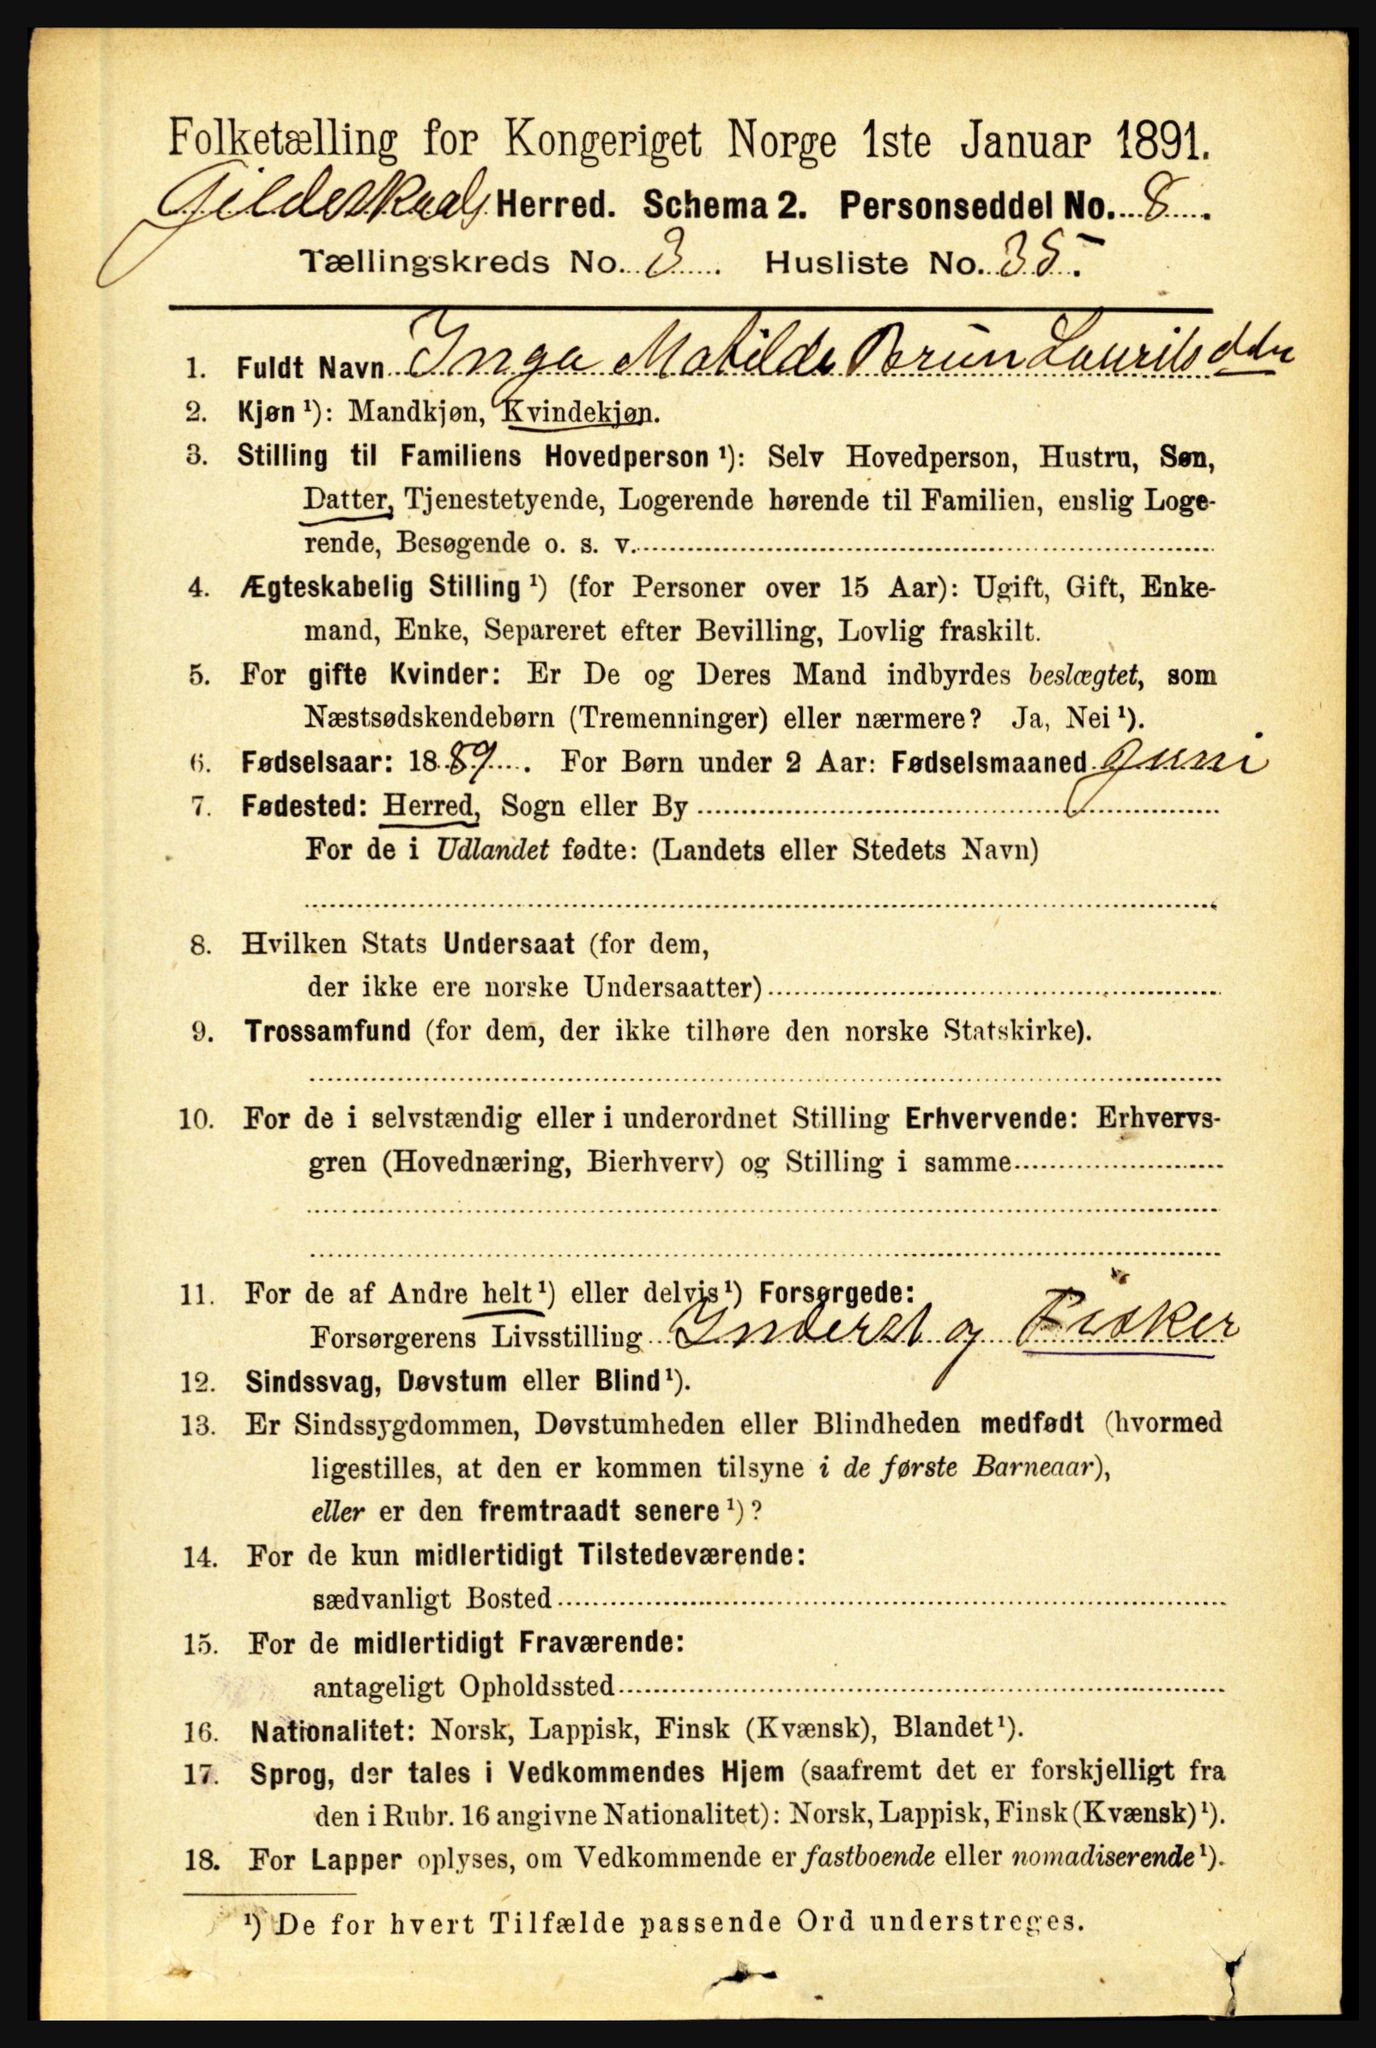 Folketælling for Kongeriget Norge 1ste Januar 1891.
Gildeskaals Herred. Schema 2. Personseddel No. 8.
Tællingskreds No. 3. Husliste No. 35.
1. Fuldt Navn Inga Matilde Brun Lauritsdtr
2. Kjøn ¹): Mandkjøn, Kvindekjøn.
3. Stilling til Familiens Hovedperson ¹): Selv Hovedperson, Hustru, Søn,
Datter, Tjenestetyende, Logerende hørende til Familien, enslig Loge-
rende, Besøgende o. s. v.
4. Ægteskabelig Stilling ¹) (for Personer over 15 Aar): Ugift, Gift, Enke-
mand, Enke, Separeret efter Bevilling, Lovlig fraskilt.
5. For gifte Kvinder: Er De og Deres Mand indbyrdes beslægtet, som
Næstsødskendebørn (Tremenninger) eller nærmere? Ja, Nei ¹).
6. Fødselsaar: 1889. For Børn under 2 Aar: Fødselsmaaned Juni
7. Fødested: Herred, Sogn eller By
For de i Udlandet fødte: (Landets eller Stedets Navn)
8. Hvilken Stats Undersaat (for dem,
der ikke ere norske Undersaatter)
9. Trossamfund (for dem, der ikke tilhøre den norske Statskirke).
10. For de i selvstændig eller i underordnet Stilling Erhvervende: Erhvervs-
gren (Hovednæring, Bierhverv) og Stilling i samme
11. For de af Andre helt ¹) eller delvis ¹) Forsørgede:
Forsørgerens Livsstilling Inderst og Fisker
12. Sindssvag, Døvstum eller Blind ¹).
13. Er Sindssygdommen, Døvstumheden eller Blindheden medfødt (hvormed
ligestilles, at den er kommen tilsyne i de første Barneaar),
eller er den fremtraadt senere ¹)?
14. For de kun midlertidigt Tilstedeværende:
sædvanligt Bosted
15. For de midlertidigt Fraværende:
antageligt Opholdssted
16. Nationalitet: Norsk, Lappisk, Finsk (Kvænsk), Blandet ¹).
17. Sprog, der tales i Vedkommendes Hjem (saafremt det er forskjelligt fra
den i Rubr. 16 angivne Nationalitet): Norsk, Lappisk, Finsk (Kvænsk) ¹).
18. For Lapper oplyses, om Vedkommende er fastboende eller nomadiserende ¹).
¹) De for hvert Tilfælde passende Ord understreges.